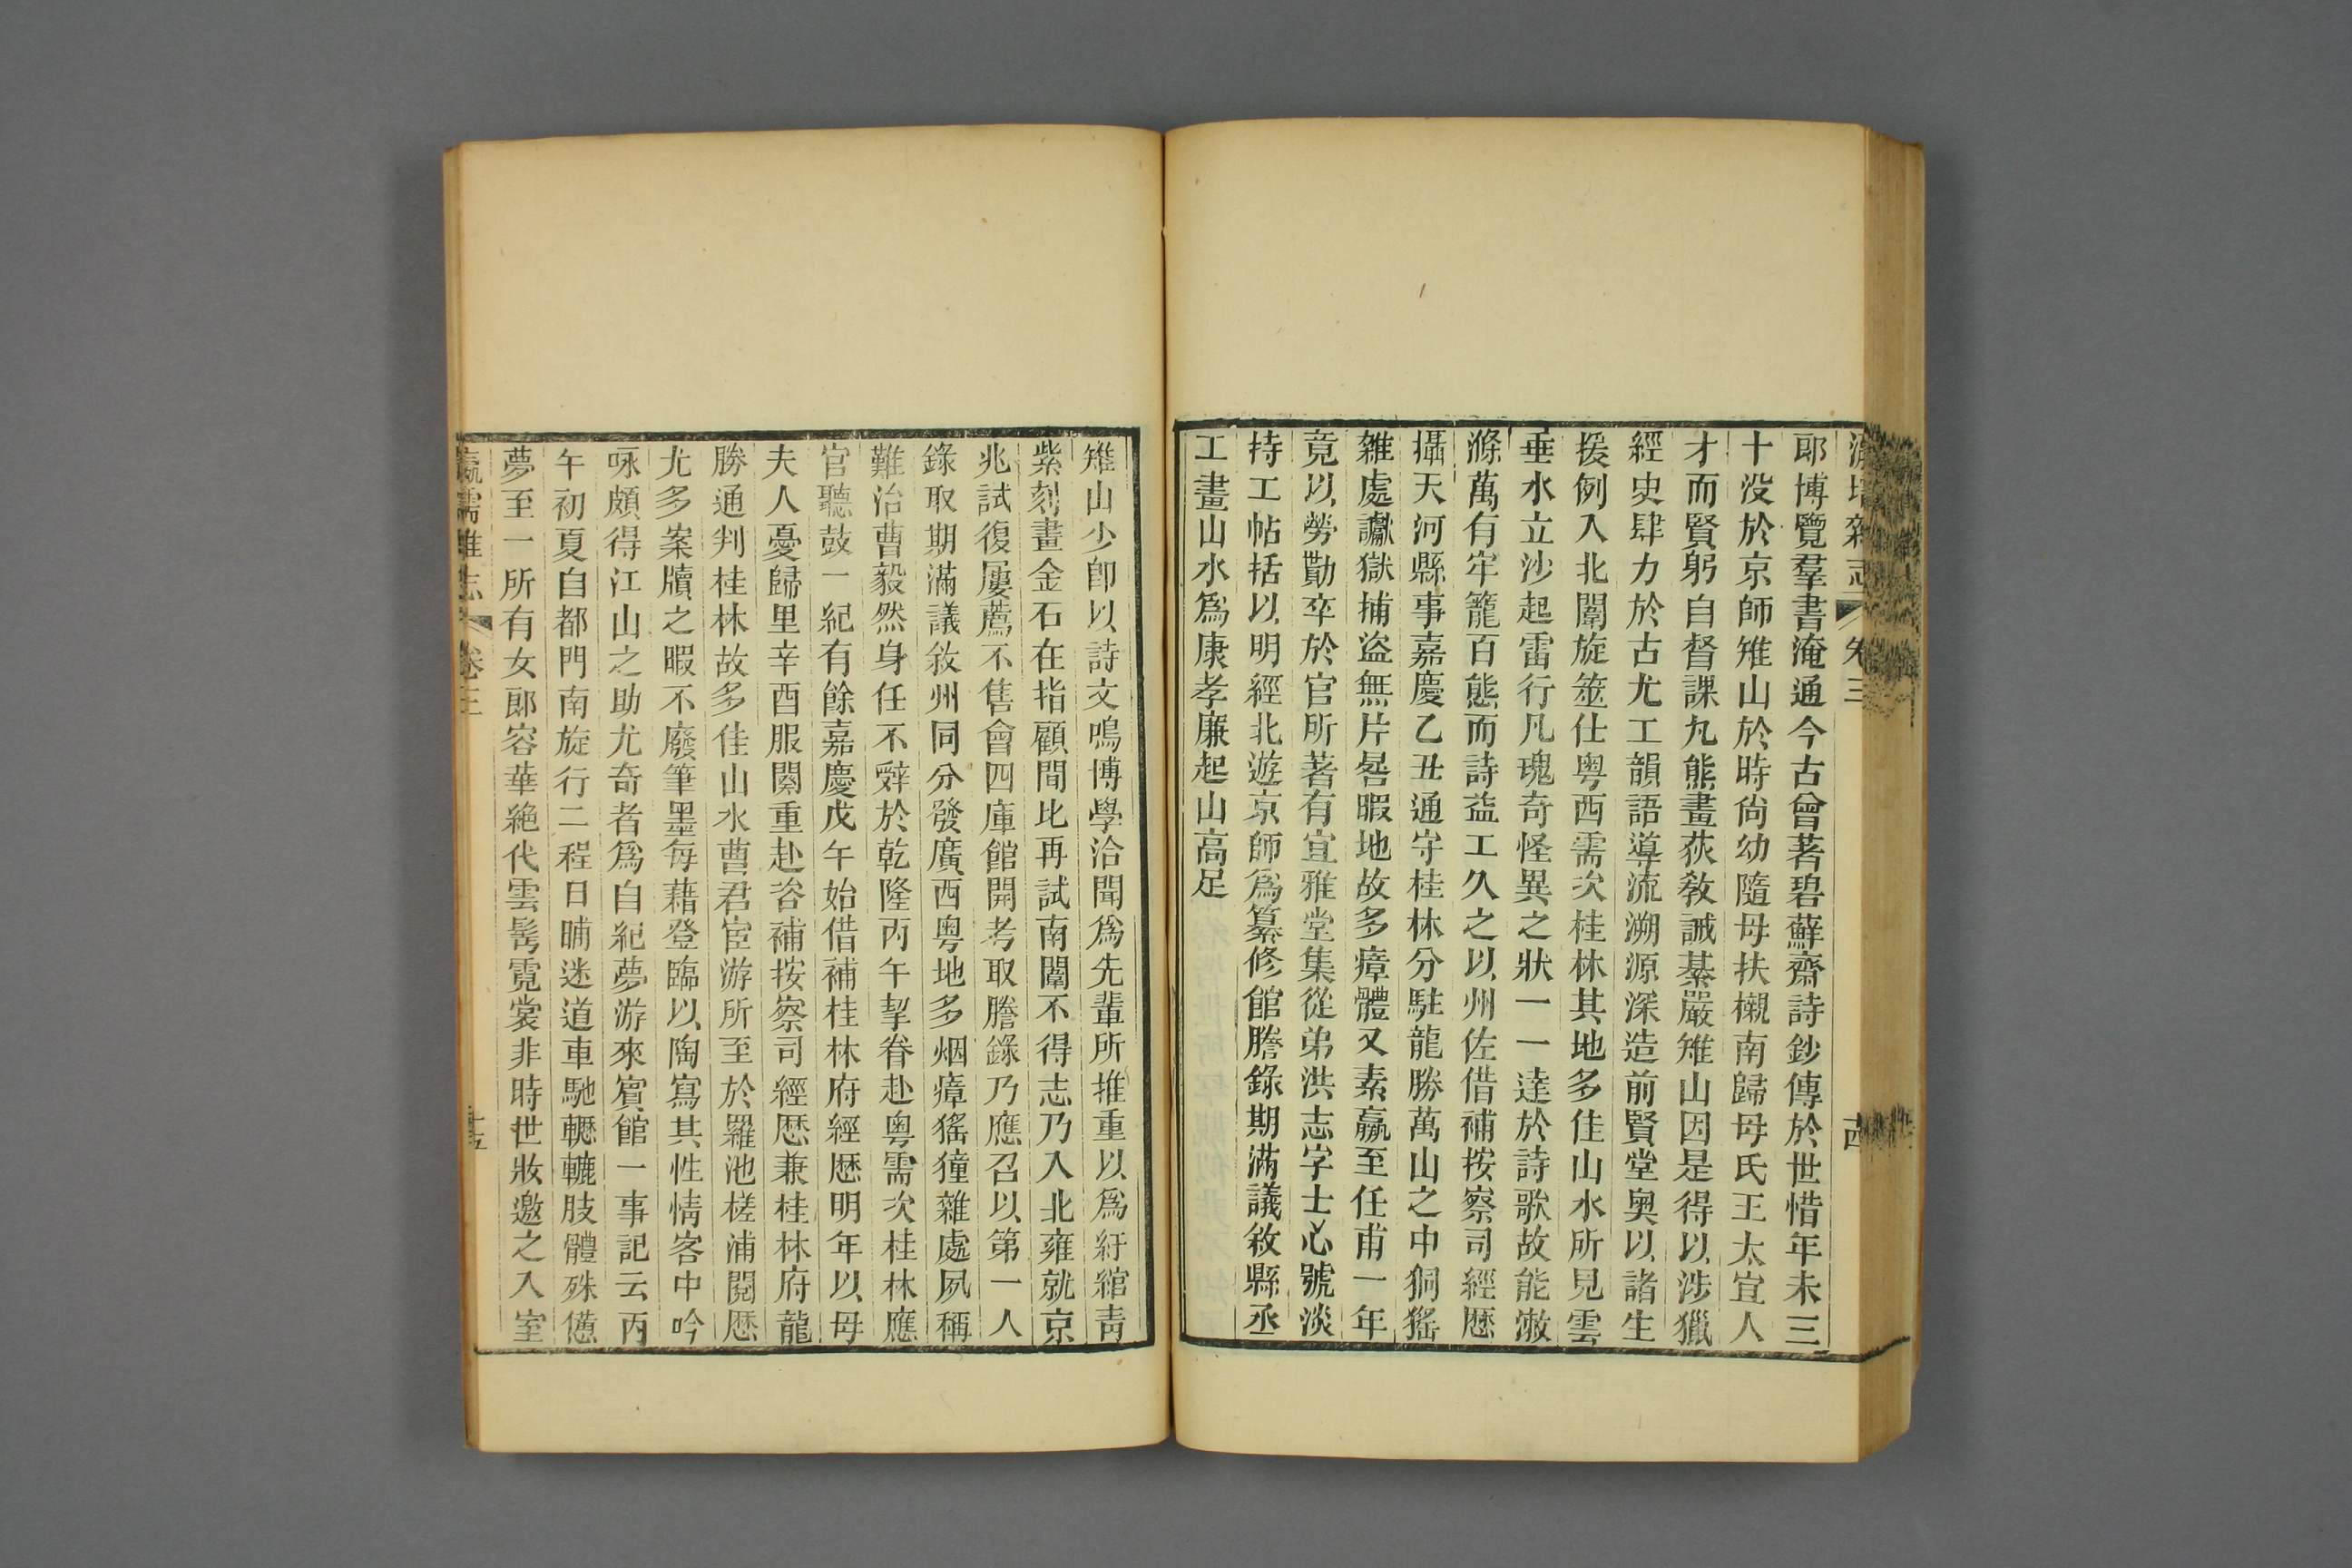 瀛壖雜志 卷三
郎博覽羣書淹通今古曾著碧蘚齋詩鈔傳於世惜年未三
十没於京師雉山於時尙幼隨母扶櫬南歸母氏王太宜人
才而賢躬自督課丸熊畫荻敎誡綦嚴雉山因是得以涉獵
經史肆力於古尤工韻語導流溯源深造前賢堂奧以諸生
援例入北闈旋筮仕粤西需次桂林其地多佳山水所見雲
垂水立沙起雷行凡瑰奇怪異之狀一一達於詩歌故能漱
滌萬有牢籠百態而詩益工久之以州佐借補按察司經歷
攝天河縣事嘉慶乙丑通守桂林分駐龍勝萬山之中狪猺
雜處讞獄捕盜無片晷暇地故多瘴體又素羸至任甫一年
竟以勞勩卒於官所著有宜雅堂集從弟洪志字士心號淡
持工帖括以明經北遊京師爲纂修館謄錄期滿議敘縣丞
工畫山水爲康孝廉起山高足
雉山少卽以詩文鳴博學洽聞爲先輩所推重以爲紆綰靑
紫刻畫金石在指顧間比再試南闈不得志乃入北雍就京
兆試復屢薦不售會四庫館開考取謄錄乃應召以第一人
錄取期滿議敘州同分發廣西粤地多烟瘴猺獞雜處夙稱
難治曹毅然身任不辤於乾隆丙午挈眷赴粤需次桂林應
官聽鼓一紀有餘嘉慶戊午始借補桂林府經歷明年以母
夫人憂歸里辛酉服闋重赴咨補按察司經歷兼桂林府龍
勝通判桂林故多佳山水曹君宦游所至於羅池槎浦閱歷
尤多案牘之暇不廢筆墨每藉登臨以陶寫其性情客中吟
咏頗得江山之助尤奇者爲自紀夢游來賓館一事記云丙
午初夏自都門南旋行二程日晡迷道車馳轣轆肢體殊憊
夢至一所有女郎容華絶代雲髩霓裳非時世妝邀之入室
瀛壖雜志 卷三 十五